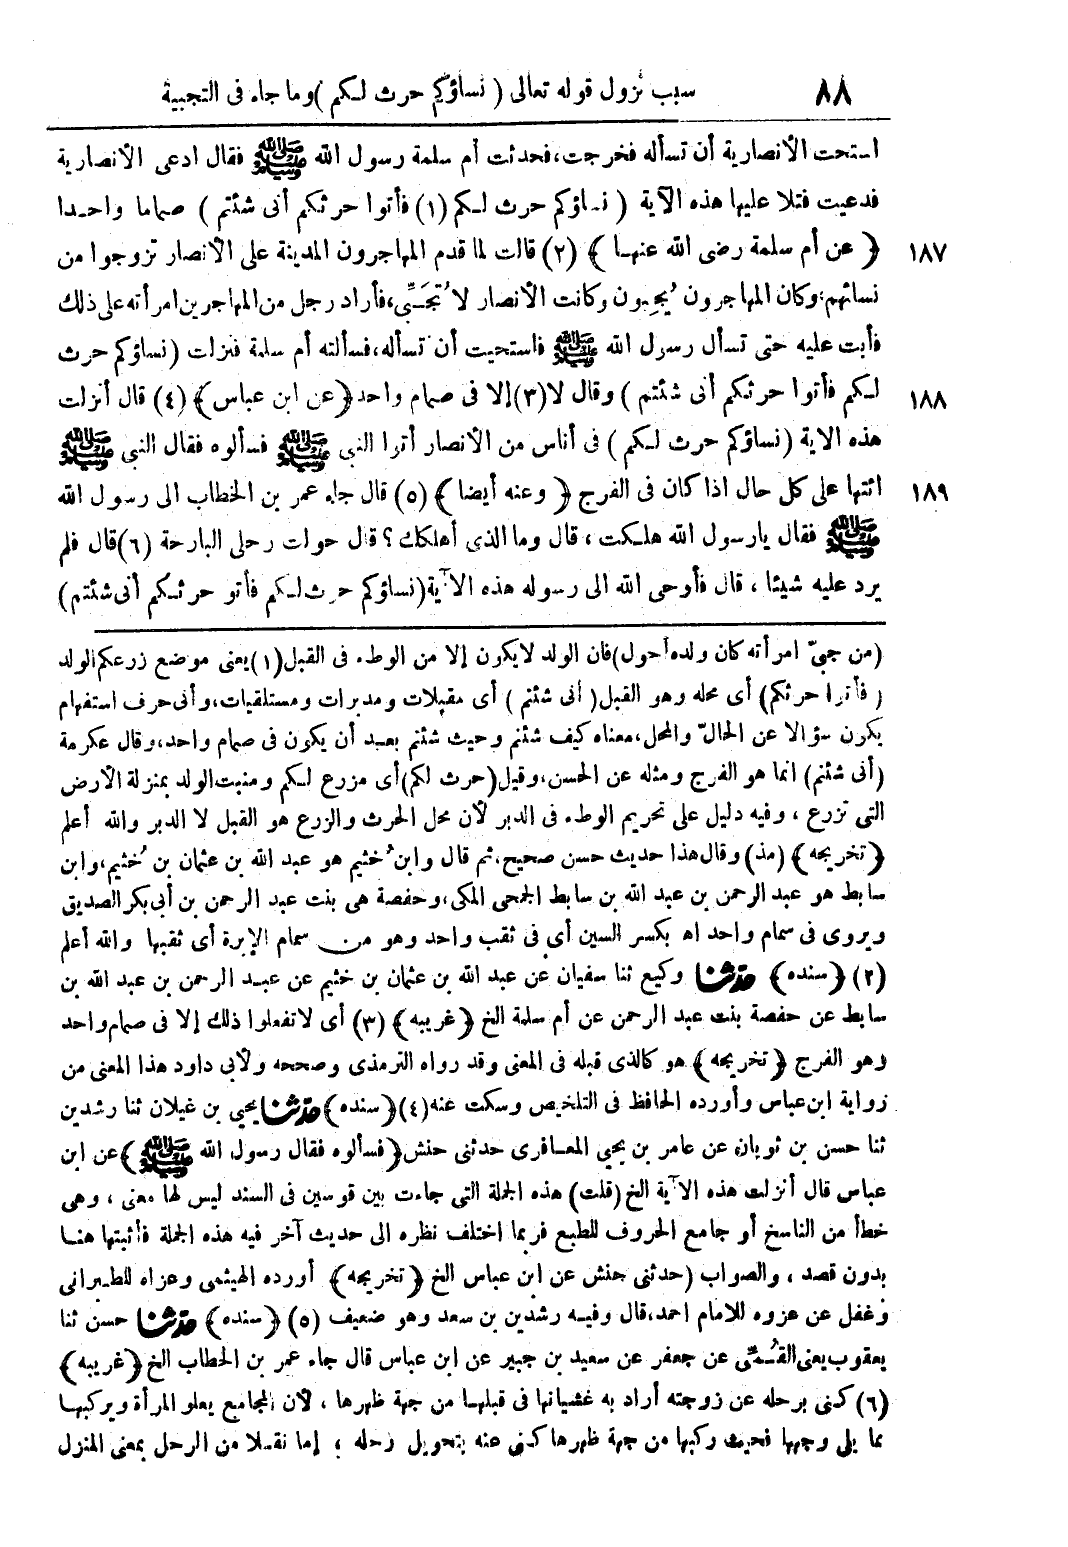 ٨٨ سبب نزول قوله تعالى ( نساؤكم حرث لكم ) وما جاء فى التجبية
استحت الأنصارية أن تسأله فخرجت، فحدثت أم سلمة رسول الله ﷺ فقال ادعى الأنصارية
فدعيت فتلا عليها هذه الآية ( نساؤكم حرث لكم (١) فأتوا حرثكم أنى شئتم ) صماما واحدا
١٨٧ ﴿ عن أم سلمة رضى الله عنها ﴾ (٢) قالت لما قدم المهاجرون المدينة على الأنصار تزوجوا من
نسائهم؛ وكان المهاجرون يُجبون وكانت الأنصار لا تُجَبِّى، فأراد رجل من المهاجرين امرأته على ذلك
فأبت عليه حتى تسأل رسول الله ﷺ فاستحيت أن تسأله، فسألته أم سلمة فنزلت (نساؤكم حرث
١٨٨ لكم فأتوا حرثكم أنى شئتم ) وقال لا (٣) إلا فى صمام واحد ﴿عن ابن عباس﴾ (٤) قال أنزلت
هذه الاية (نساؤكم حرث لكم ) فى أناس من الأنصار أتوا النبى ﷺ فسألوه فقال النبى ﷺ
١٨٩ ائتها على كل حال اذا كان فى الفرج ﴿ وعنه أيضا ﴾ (٥) قال جاء عمر بن الخطاب الى رسول الله
ﷺ فقال يارسول الله هلكت ، قال وما الذى أهلكك ؟ قال حولت رحلى البارحة (٦) قال فلم
يرد عليه شيئا ، قال فأوحى الله الى رسوله هذه الآية (نساؤكم حرث لكم فأتو حرثكم أنى شئتم)
(من جبىّ امرأته كان ولده أحول) فان الولد لا يكون إلا من الوطء فى القبل (١) يعنى موضع زرعكم الولد
( فأتوا حرثكم) أى محله وهو القبل ( أنى شئتم ) أى مقبلات ومدبرات ومستلقيات، وأنى حرف استفهام
يكون سؤالا عن الحالّ والمحل، معناه كيف شئتم وحيث شئتم بعد أن يكون فى صمام واحد، وقال عكرمة
(أنى شئتم) انما هو الفرج ومثله عن الحسن، وقيل (حرث لكم) أى مزرع لكم ومنبت الولد بمنزلة الأرض
التى تزرع ، وفيه دليل على تحريم الوطء فى الدبر لأن محل الحرث والزرع هو القبل لا الدبر والله أعلم
﴿تخريجه﴾ (مذ) وقال هذا حديث حسن صحيح، ثم قال وابن خُثيم هو عبد الله بن عثمان بن خُثيم، وابن
سابط هو عبد الرحمن بن عبد الله بن سابط الجمحى المكى، وحفصة هى بنت عبد الرحمن بن أبى بكر الصديق
ويروى فى سمام واحد اه بكسر السين أى فى ثقب واحد وهو من سمام الإبرة أى ثقبها والله أعلم
(٢) ﴿سنده﴾ حدثنا وكيع ثنا سفيان عن عبد الله بن عثمان بن خثيم عن عبد الرحمن بن عبد الله بن
سابط عن حفصة بنت عبد الرحمن عن أم سلمة الخ ﴿غريبه﴾ (٣) أى لا تفعلوا ذلك إلا فى صمام واحد
وهو الفرج ﴿تخريجه﴾ هو كالذى قبله فى المعنى وقد رواه الترمذى وصححه ولأبى داود هذا المعنى من
رواية ابن عباس وأورده الحافظ فى التلخيص وسكت عنه (٤) ﴿سنده﴾ حدثنا يحيى بن غيلان ثنا رشدين
ثنا حسن بن ثوبان عن عامر بن يحيى المعافرى حدثنى حنش ﴿فسألوه فقال رسول الله ﷺ ﴾ عن ابن
عباس قال أنزلت هذه الآية الخ (قلت) هذه الجملة التى جاءت بين قوسين فى السند ليس لها معنى ، وهى
خطأ من الناسخ أو جامع الحروف للطبع فربما اختلف نظره الى حديث آخر فيه هذه الجملة فأثبتها هنا
بدون قصد ، والصواب (حدثنى حنش عن ابن عباس الخ ﴿تخريجه﴾ أورده الهيثمى وعزاه للطبرانى
وغفل عن عزوه للامام احمد، قال وفيه رشدين بن سعد وهو ضعيف (٥) ﴿سنده﴾ حدثنا حسن ثنا
يعقوب يعنى القُمِّى عن جعفر عن سعيد بن جبير عن ابن عباس قال جاء عمر بن الخطاب الخ ﴿غريبه﴾
(٦) كنى برحله عن زوجته أراد به غشيانها فى قبلها من جهة ظهرها ، لأن المجامع يعلو المرأة ويركبها
مما يلى وجهها فحيث ركبها من جهة ظهرها كنى عنه بتحويل رحله ؛ إما نقلا من الرحل بمعنى المنزل